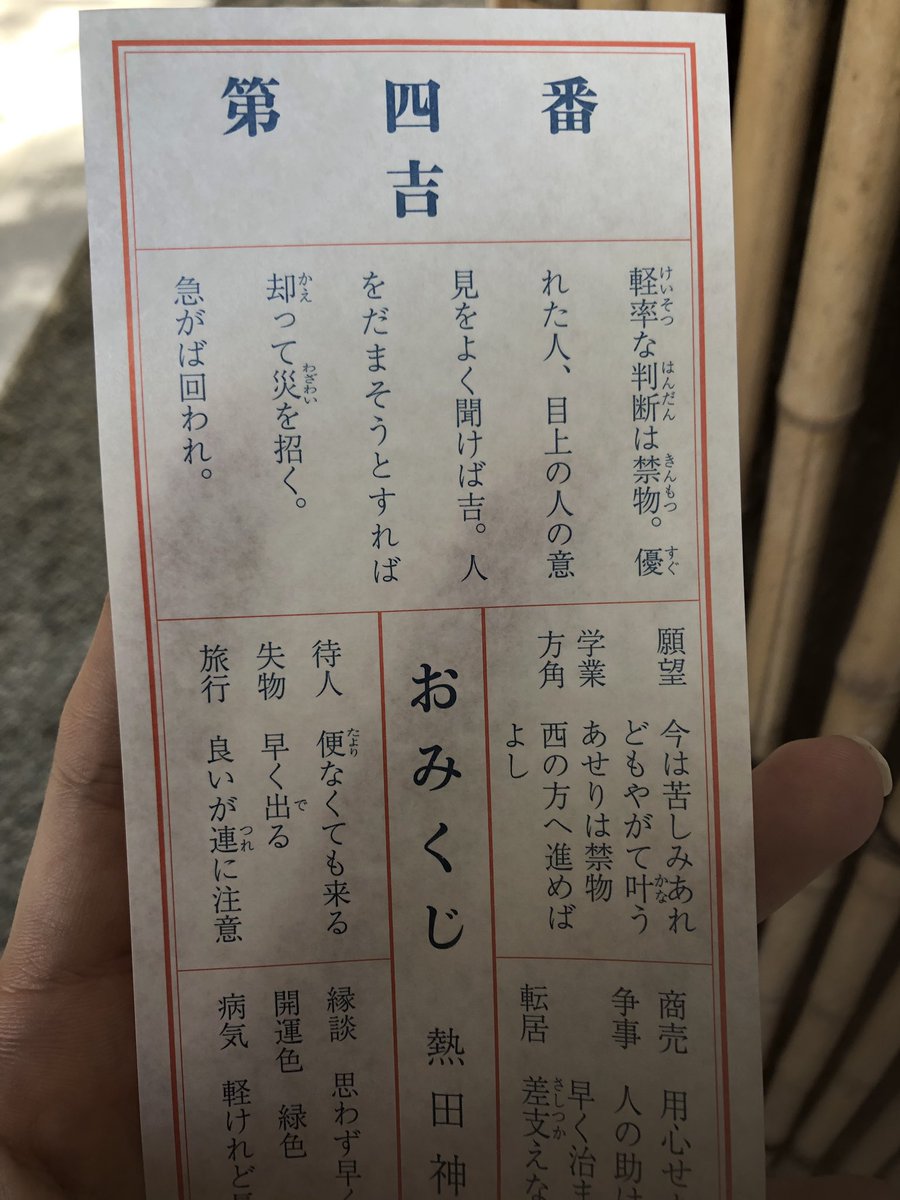 第四番
吉
軽率な判断は禁物。優
れた人、目上の人の意
見をよく聞けば吉。人
をだまそうとすれば
却って災を招く。
急がば回われ。
願望 今は苦しみあれ
どもやがて叶う
学業 あせりは禁物
方角 西の方へ進めば
よし
おみくじ 熱田神
待人 便なくても来る
失物 早く出る
旅行 良いが連に注意
商売 用心せ
争事 人の助け
早く治ま
転居 差支えな
縁談 思わず早く
開運色 緑色
病気 軽けれど